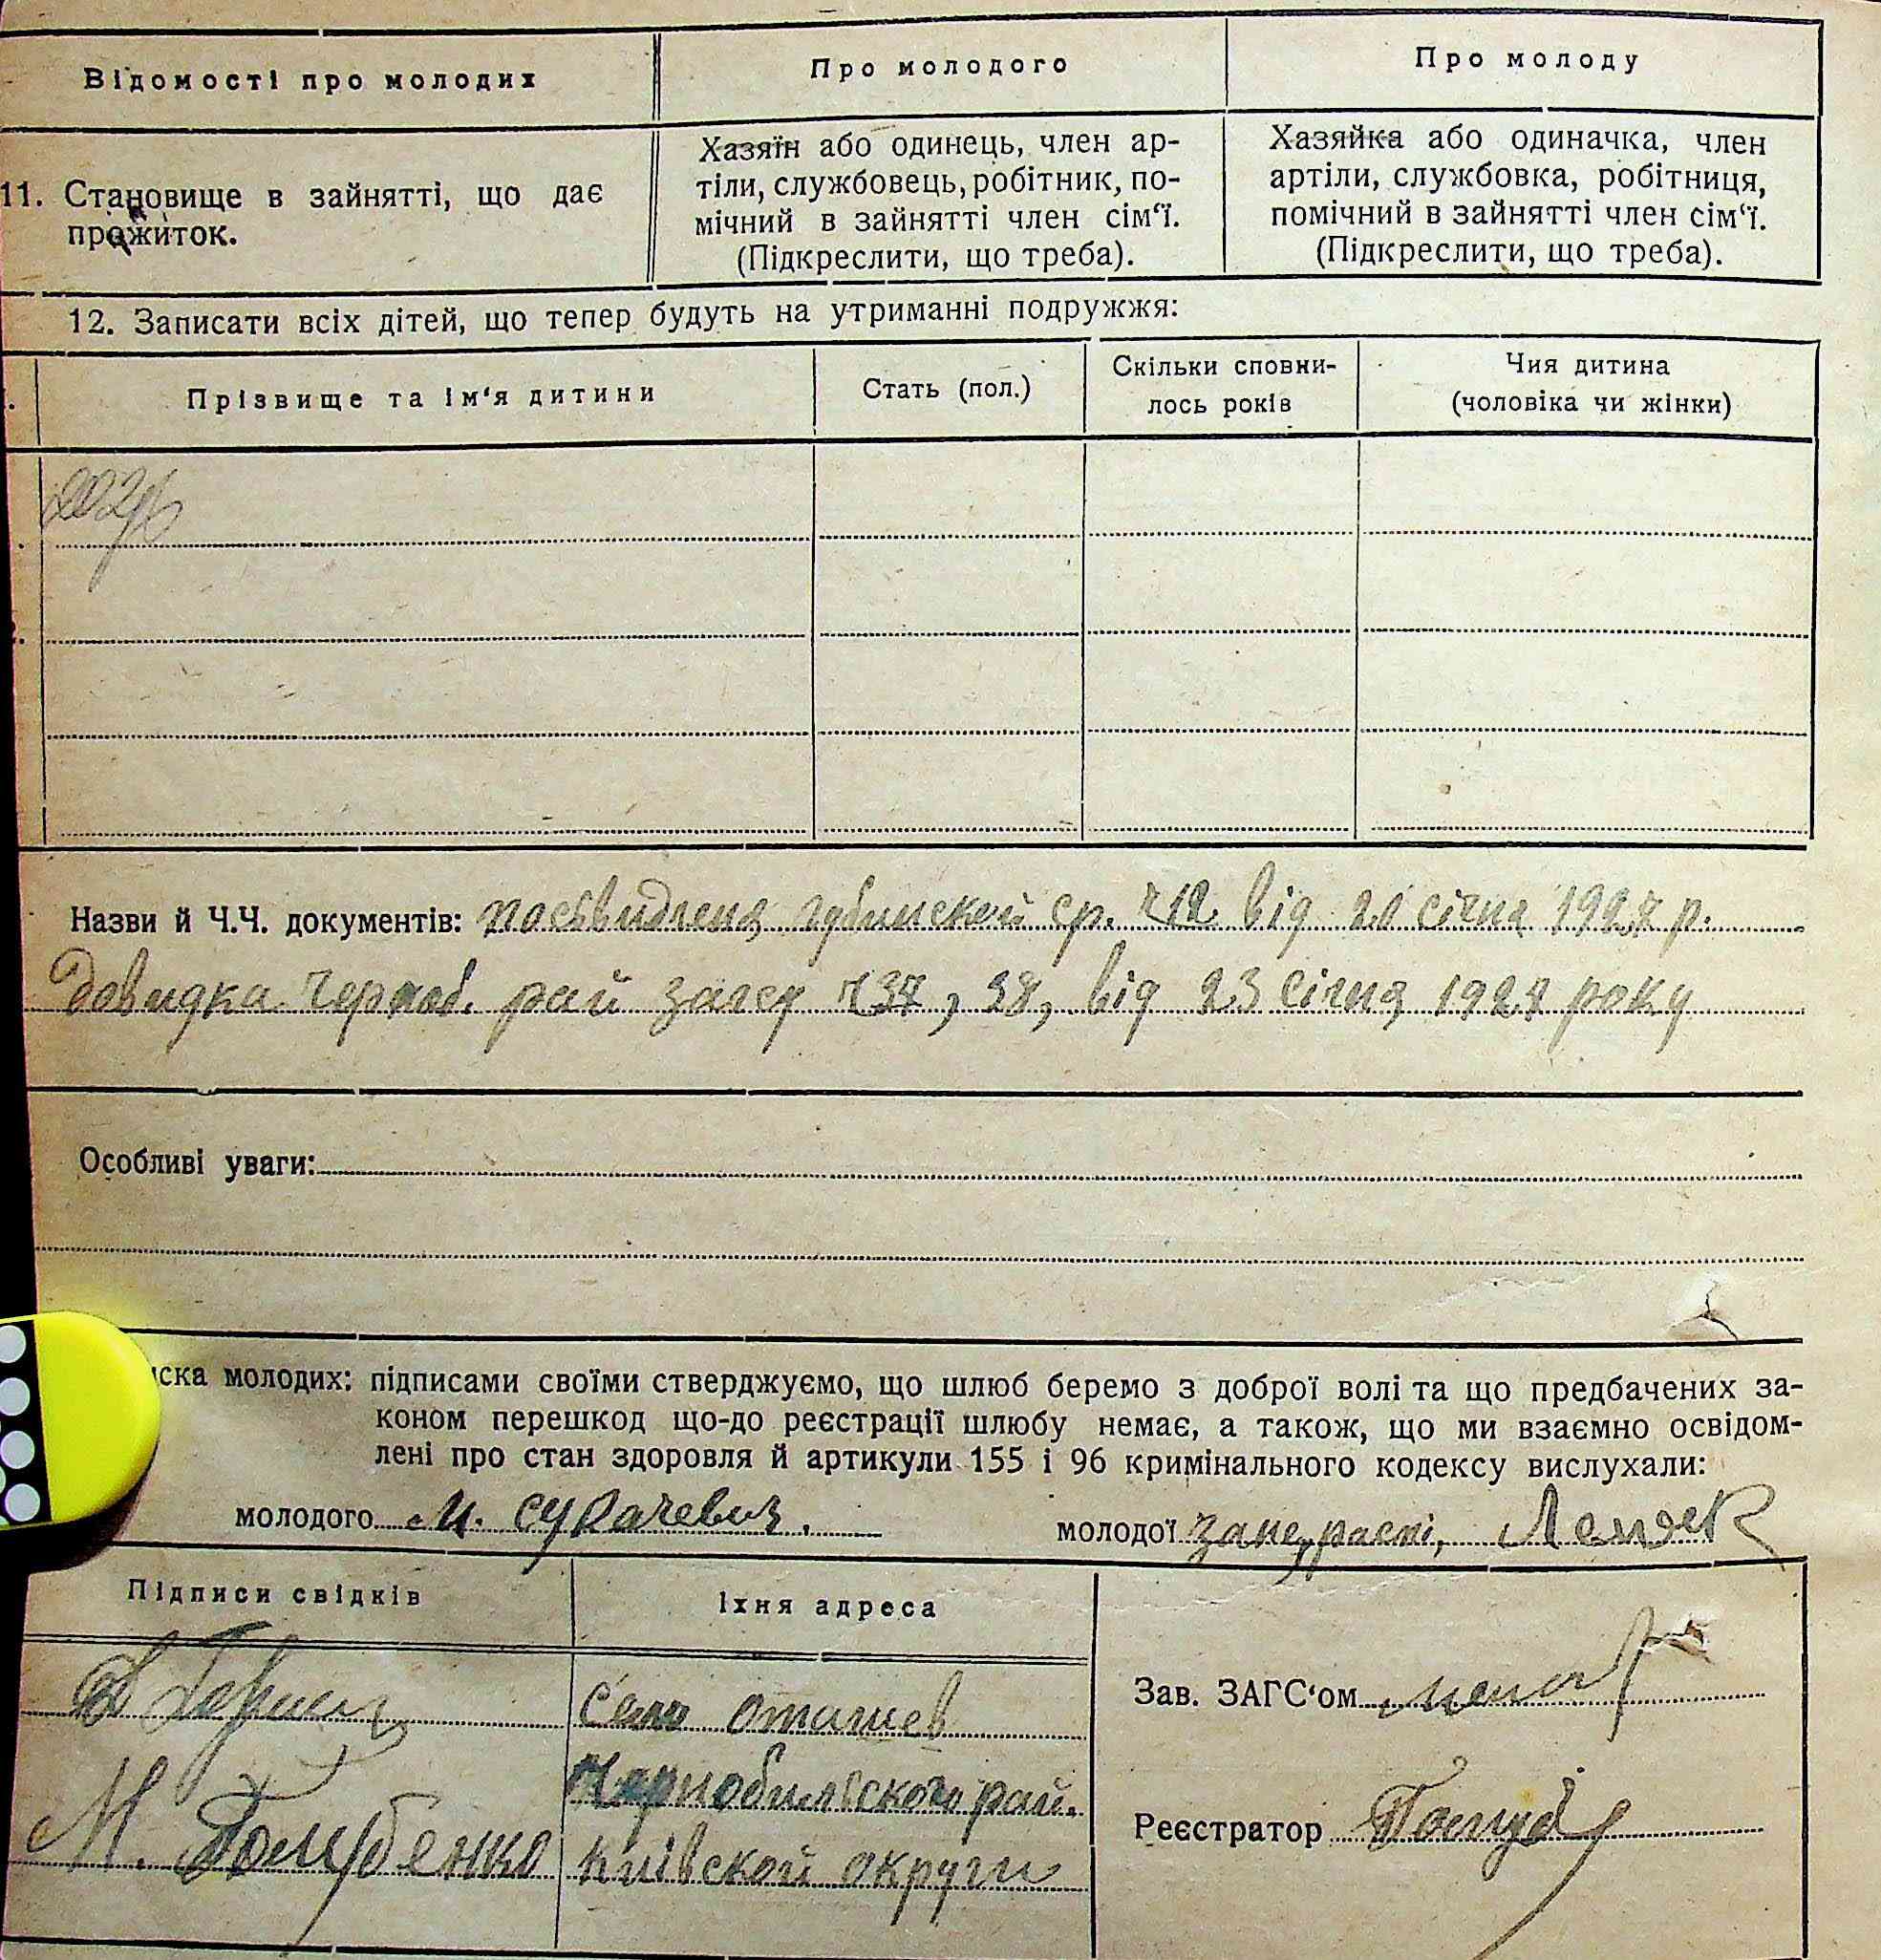 Відомості про молодих
Про молодого
Про молоду
11. Становище в зайнятті, що дає
прожиток.
Хазяїн або одинець, член ар-
тіли, службовець, робітник, по-
мічний в зайнятті член сім‘ї.
(Підкреслити, що треба).
Хазяйка або одиначка, член
артіли, службовка, робітниця,
помічний в зайнятті член сім‘ї.
(Підкреслити, що треба).
12. Записати всіх дітей, що тепер будуть на утриманні подружжя:
Прізвище та ім‘я дитини
Стать (пол.)
Скільки сповни-
лось років
Чия дитина
(чоловіка чи жінки)
Назви й Ч.Ч. документів: ср. ч12 від січня 1927 р.
Довидка рай загсу ч37, 38, від 23 січня 1927 року
Особливі уваги:
молодих: підписами своїми стверджуємо, що шлюб беремо з доброї волі та що предбачених за-
коном перешкод що-до реєстрації шлюбу немає, а також, що ми взаємно освідом-
лені про стан здоровля й артикули 155 і 96 кримінального кодексу вислухали:
молодого М. Сукачевиз.
молодої
Підписи свідків
Їхня адреса
село Оташев
Чорнобильского рай.
М. Голубенко
Київской округи
Зав. ЗАГС‘ом
Реєстратор